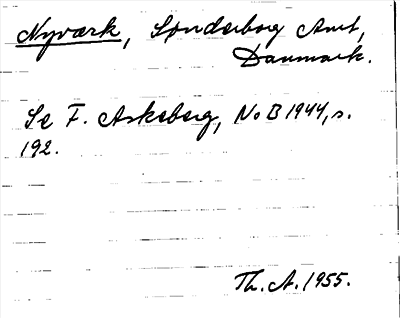 Nyværk, Sønderborg Amt,
Danmark.
Se F. Askeberg, NoB 1944, s.
192.
Th. A. 1955.